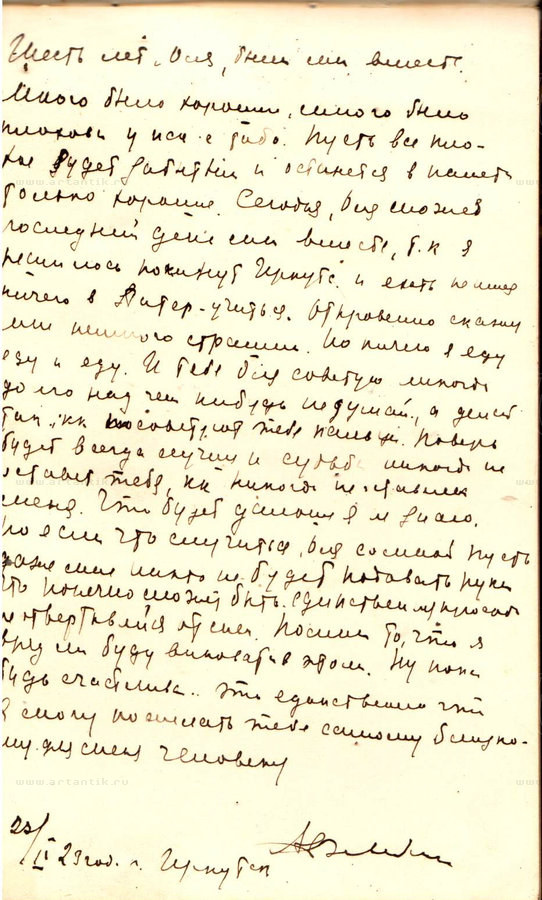 Шесть лет, Оля, были мы вместе.
Много было хороши, много было
плохова у нас с тобо. Пусть все пло-
хое будет забытым и останется в памети
только хорошие. Сегодня, Оля может
последний день мы вместе, т.к я
решилось покинут Иркутс. и ехать не имея
ничего в Питер-учиться. Откровенно скажу
мне немного страшн. Но ничего я еду
еду и еду. И тебе Оля советую никогда
долго над чем нибудь не думай, а делай
так, как посоветует тебе
будет всегда лучши и судьба никогда не
оставит тебя, как никогда не оставляла
меня. Что будет дальше я не знаю.
Но если что случиться, Оля со мной пусть
даже мне никто не будет подавать руки
что конечно может быть. Единствен
не отвертывайся от меня. Помни то, что я
вряд ли буду виноват в этом. Ну пока
будь счастлива.. это единственно что
я могу пожелать тебе самому близко-
му для меня человеку
23/IV 23 год. г. Иркутск
www.artantik.ru